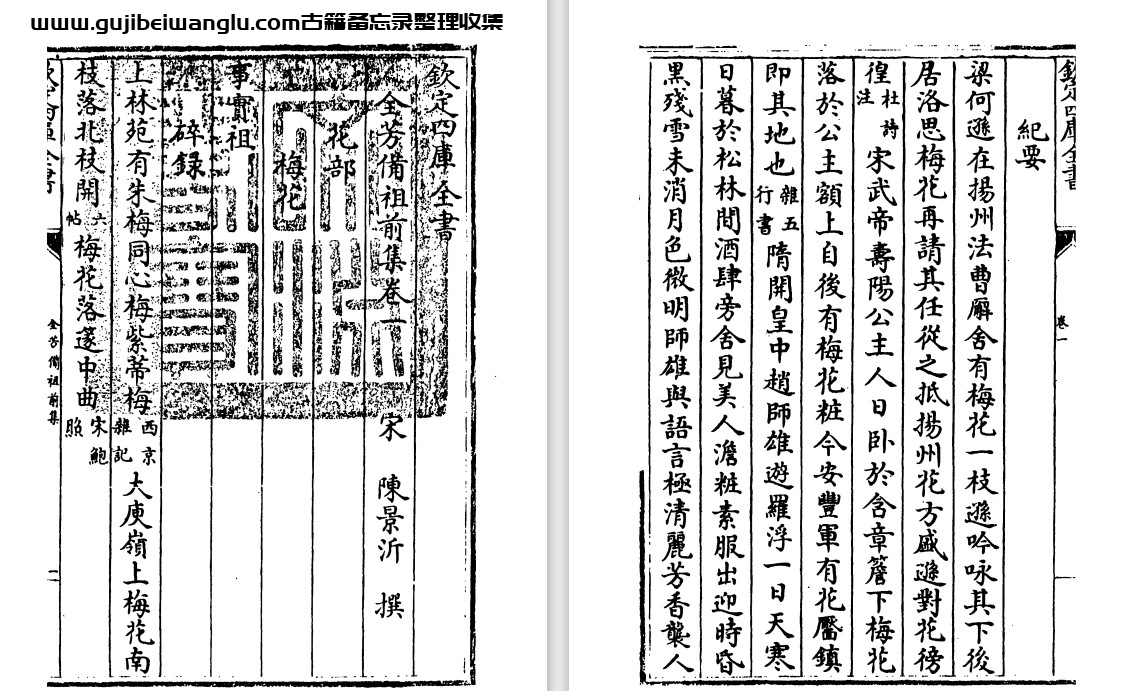 www.gujibeiwanglu.com古籍备忘录整理收集
欽定四庫全書
全芳備祖前集卷一 宋 陳景沂 撰
花部
梅花
事實祖
碎録
上林苑有朱梅同心梅紫蒂梅西京雜記大庾嶺上梅花南
枝落北枝開六帖梅花落邃中曲宋鮑照
全芳備祖前集
二
欽定四庫全書
卷一
紀要
梁何遜在揚州法曹廨舍有梅花一枝遜吟咏其下後
居洛思梅花再請其任從之抵揚州花方盛遜對花徬
徨杜詩注宋武帝壽陽公主人日卧於含章簷下梅花
落於公主額上自後有梅花粧今安豐軍有花靨鎮
即其地也雜五行書隋開皇中趙師雄遊羅浮一日天寒
日暮於松林間酒肆旁舍見美人澹粧素服出迎時昏
黑殘雪未消月色微明師雄與語言極清麗芳香襲人